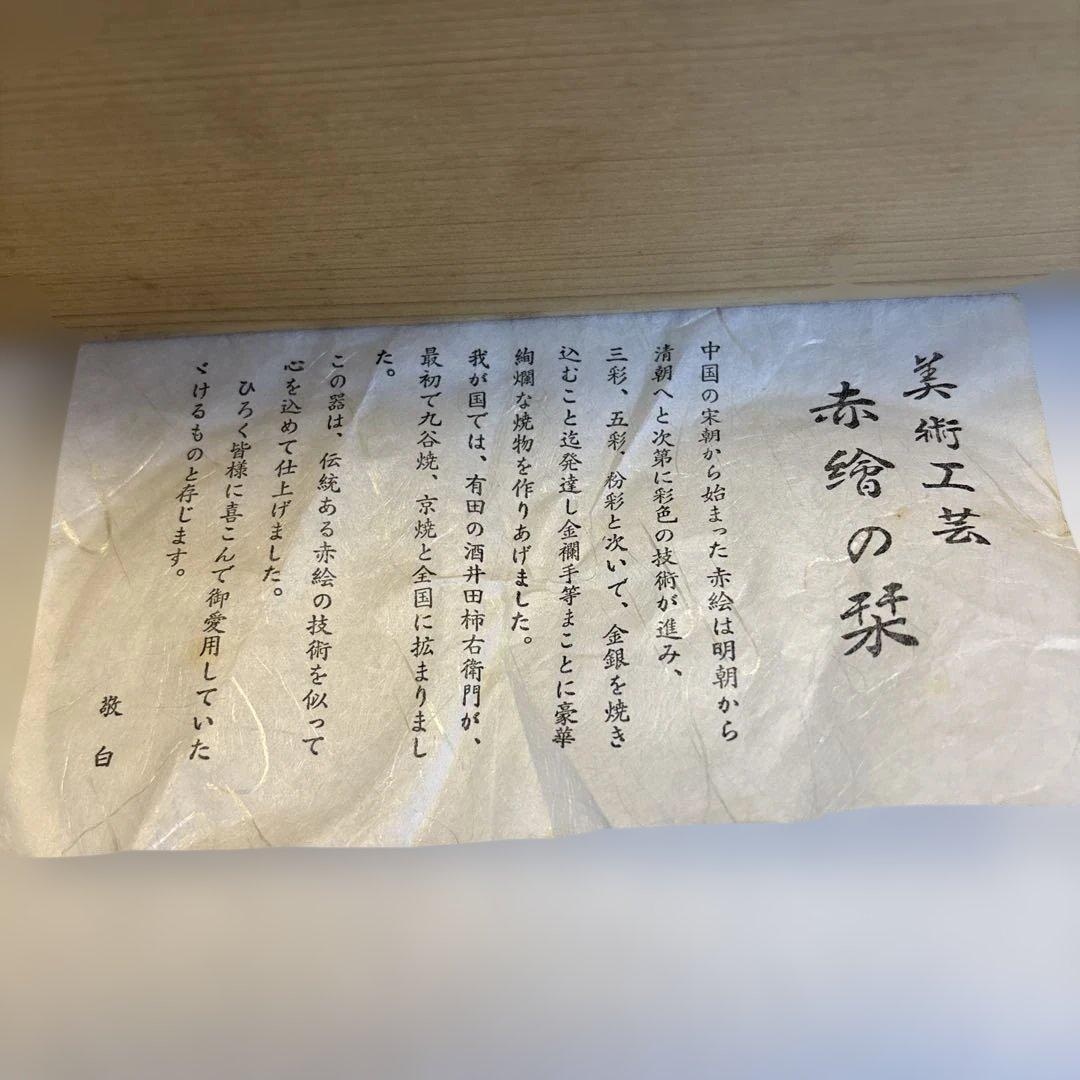 美術工芸
赤繪の栞
中国の宋朝から始まった赤絵は明朝から
清朝へと次第に彩色の技術が進み、
三彩、五彩、粉彩と次いで、金銀を焼き
込むこと迄発達し金襴手等まことに豪華
絢爛な焼物を作りあげました。
我が国では、有田の酒井田柿右衛門が、
最初で九谷焼、京焼と全国に拡まりまし
た。
この器は、伝統ある赤絵の技術を似って
心を込めて仕上げました。
ひろく皆様に喜こんで御愛用していた
ゞけるものと存じます。
敬白